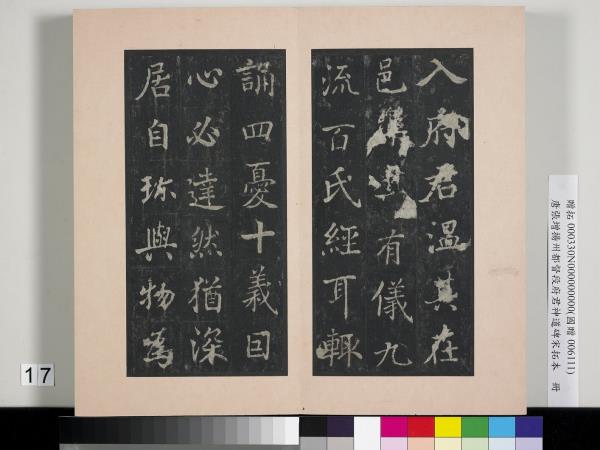 入府君溫其在
邑
有儀九
流百氏經耳輒
誦四憂十義因
心必達然猶深
居自珎與物爲
贈拓 000330N000000000(國贈 006111)
唐張增揚州都督段府君神道碑宋拓本 冊
17